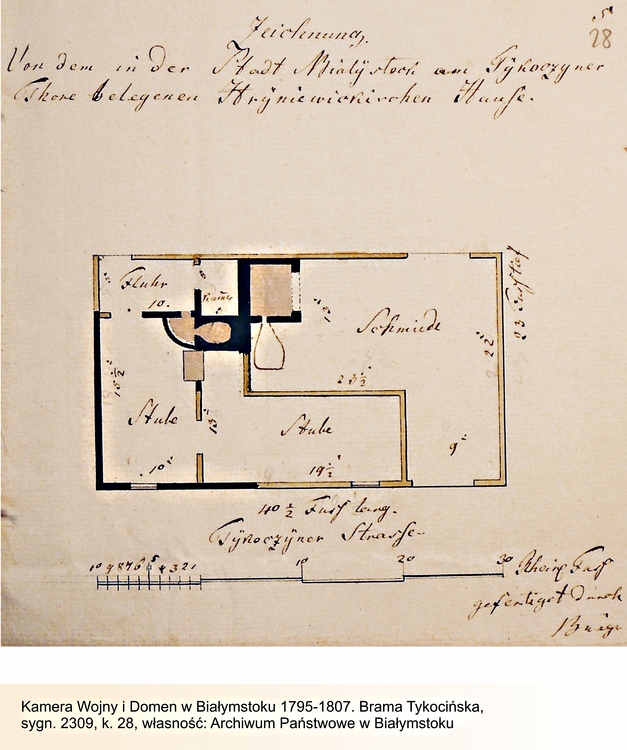 5
28
Zeichnung.
Von dem in der Stadt Bialÿstock am Tÿkoczyner
Thore belegenen Hrÿniewickischen Hause.
Fluhr
10.
Schmiede
23 Fuss tief
22
23½
Stube
10
13
Stube
19½
9
40½ Fuss lang.
Tÿkoczÿner Strasse.
10 9 8 7 6 5 4 3 2 1
10
20
30 Rheinl Fuss
gefertiget durch
Kamera Wojny i Domen w Białymstoku 1795-1807. Brama Tykocińska,
sygn. 2309, k. 28, własność: Archiwum Państwowe w Białymstoku